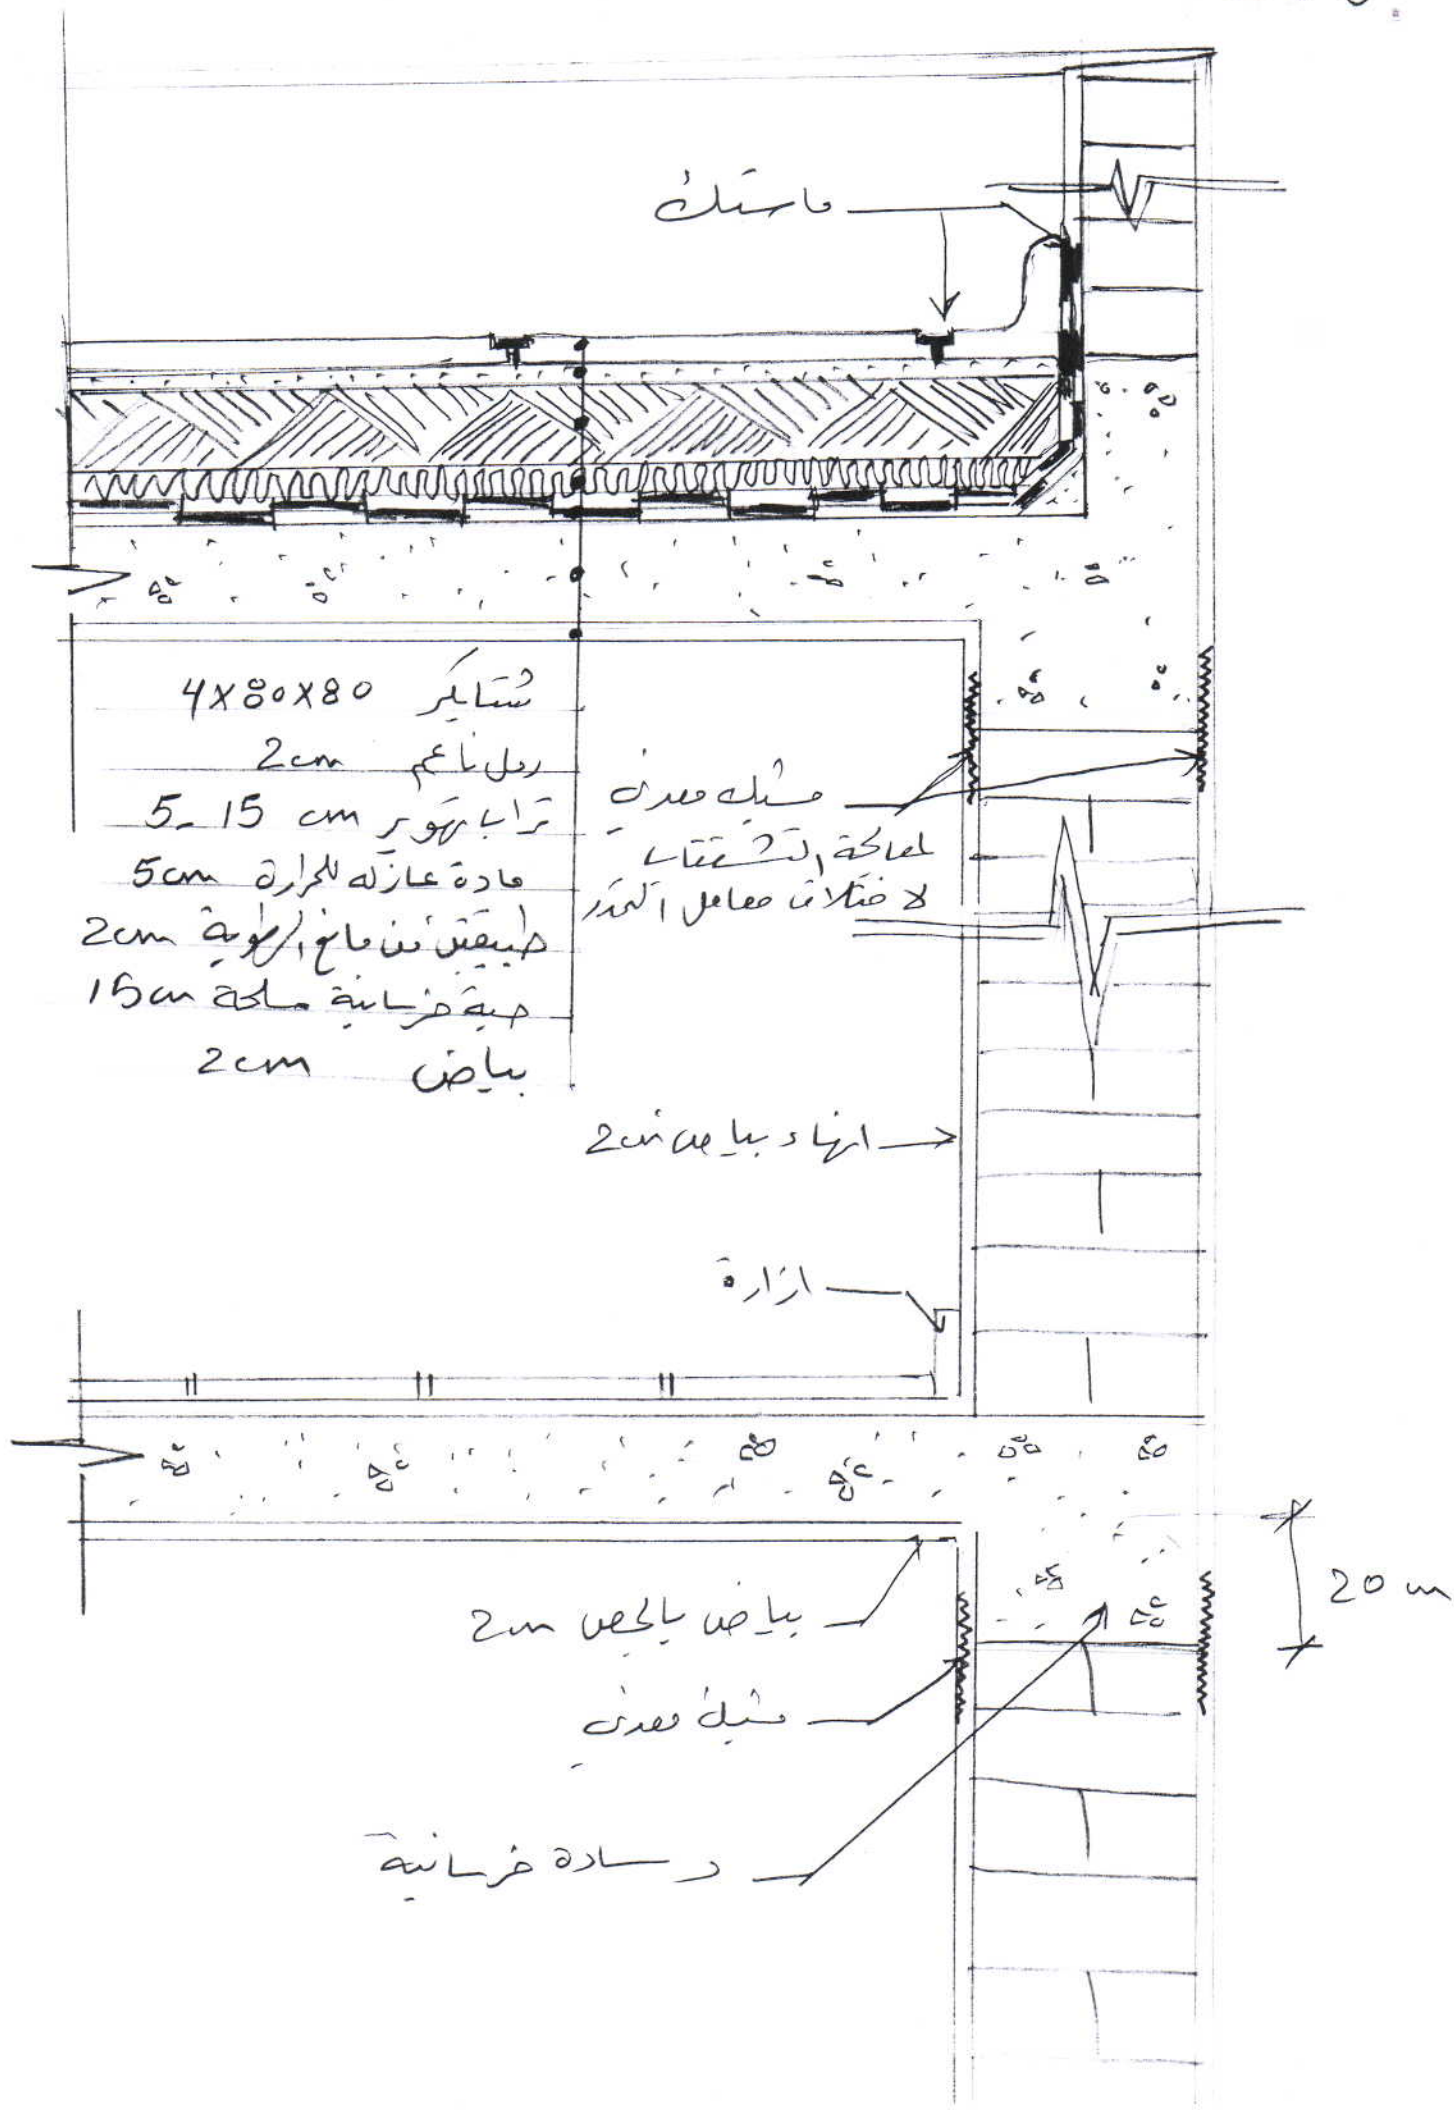 ماستك
شتايكر 80×80×4
رمل ناعم 2cm
تراب تهوير 5-15 cm
مادة عازله للحرارة 5cm
طبقتين من مانع الرطوبة 2cm
صبة خرسانية مسلحة 15cm
بياض 2cm
مشبك معدني
لمعالجة التشققات
لاختلاف معامل التمدد
انهاء بياض 2cm
ازارة
20 cm
بياض بالجص 2cm
مشبك معدني
وسادة خرسانية